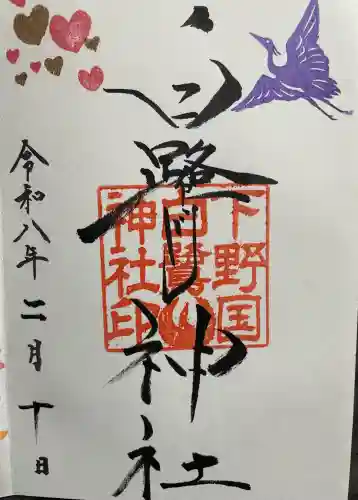 白鷺神社
下野国
白鷺山
神社印
令和八年二月十日